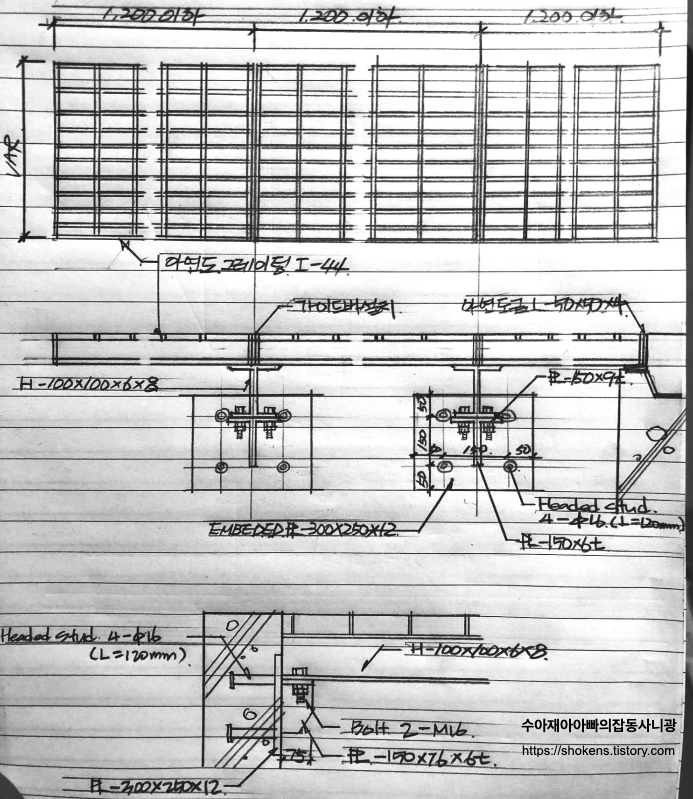 1,200 이하
1,200 이하
1,200 이하
VAR
아연도 그레이팅 I-44
가이드바 설치
아연도금 L-50x50x4
H-100x100x6x8
PL-150x9t
50
150
150
50
50
EMBEDED PL-300x250x12
Headed stud.
4-Φ16.(L=120mm)
PL-150x6t
Headed stud. 4-Φ16
(L=120mm).
H-100x100x6x8
Bolt 2-M16.
75
PL-150x76x6t.
PL-300x250x12
수아재아아빠의잡동사니광
https://shokens.tistory.com